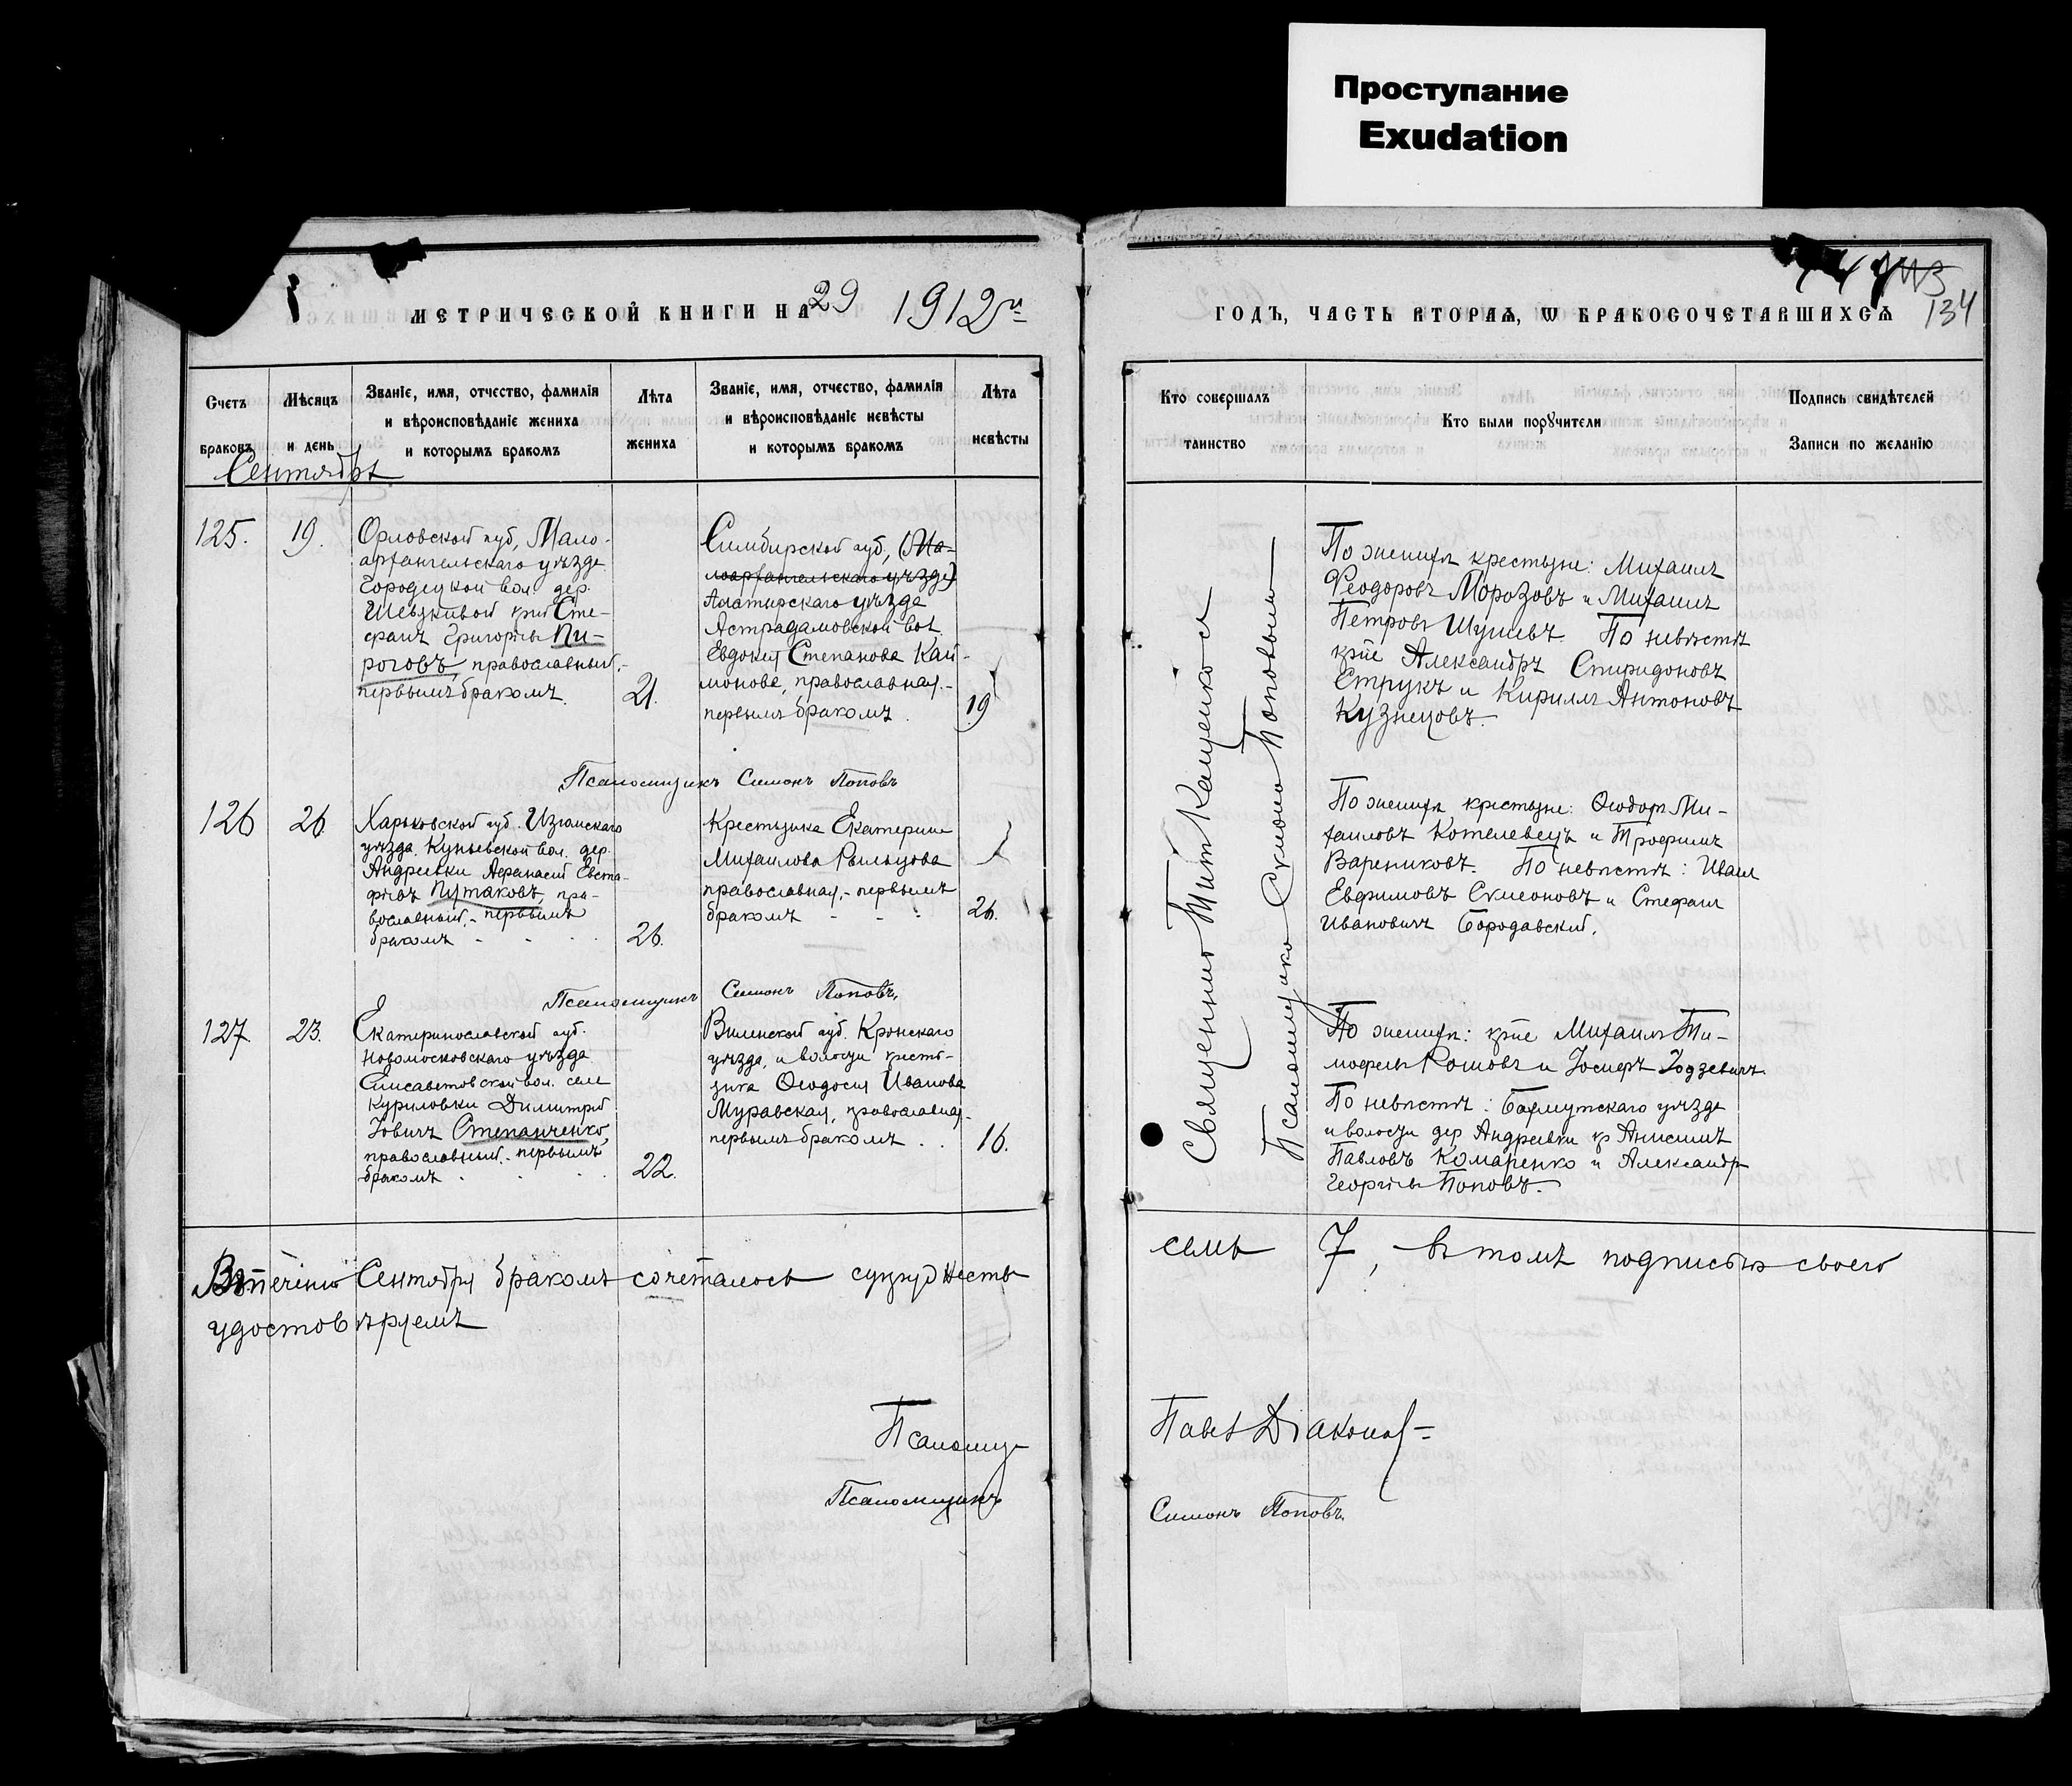 Проступание
Exudation
МЕТРИЧЕСКОЙ КНИГИ НА 29 1912 г.
ГОДЪ, ЧАСТЬ ВТОРАѦ, Ѡ БРАКОСОЧЕТАВШИХСѦ
134
Счетъ
браковъ
Мѣсяцъ
и день
Званіе, имя, отчество, фамилія
и вѣроисповѣданіе жениха
и которымъ бракомъ
Лѣта
жениха
Званіе, имя, отчество, фамилія
и вѣроисповѣданіе невѣсты
и которымъ бракомъ
Лѣта
невѣсты
Кто совершалъ
таинство
Кто были поручители
Подпись свидѣтелей
Записи по желанію
Сентябрь
125.
19.
Орловской губ, Мало-
архангельскаго уѣзда
Городецкой вол. дер.
кри Сте-
фанъ Григорьев Пи-
роговъ, православный,-
первымъ бракомъ.
21.
Симбирской губ., (Ма-
лоархангельскаго уѣзда)
Алатырскаго уѣзда
Астрадамовской вол.
Евдокія Степанова Кай-
монова, православная.-
первымъ бракомъ.
19
Псаломщикъ Симонъ Поповъ
126
26
Харьковской губ. Изюмскаго
уѣзда. Купьевской вол. дер.
Андреевки Афанасій Евста-
фіевъ Путаковъ, пра-
вославный,- первымъ
бракомъ
26.
Крестьянка Екатерина
Михаилова Рыльцова
православная,- первымъ
бракомъ
26.
Псаломщикъ Симонъ Поповъ,
127.
23.
Екатеринославской губ.
Новомосковскаго уѣзда
Елисаветовской вол. села
Куриловки Димитрій
Іовичъ Степанченко,
православный.- первымъ
бракомъ
22.
Виленской губ. Кронскаго
уѣзда, и волости кресть-
янка Ѳеодосія Иванова
Муравская, православная,-
первымъ бракомъ
16.
Священникъ Титъ
Псаломщикъ Симонъ Поповъ
По женихѣ крестьяне: Михаилъ
Ѳеодоровъ Морозовъ и Михаилъ
Петровъ Шушевъ. По невѣстѣ
кр-не Александръ Спиридоновъ
Струкъ и Кириллъ Антоновъ
Кузнецовъ.
По женихѣ, крестьяне: Ѳеодоръ Ми-
хаиловъ Котелевецъ и Трофимъ
Варениковъ. По невѣстѣ: Иванъ
Евфимовъ Симеоновъ и Стефанъ
Ивановичъ Бородавский.
По женихѣ: кр-не Михаилъ Ти-
мофеевъ Рошовъ и Іосифъ
По невѣстѣ: Бахмутскаго уѣзда
и волости дер Андреевки кр Анисимъ
Павловъ Комаренко и Александръ
Георгіевъ Поповъ.
Въ теченіи Сентября бракомъ сочеталось супружествъ
семь 7, въ томъ подписью своею
удостовѣряемъ
Псаломщ
Павел Діаконов
Псаломщикъ
Симонъ Поповъ.